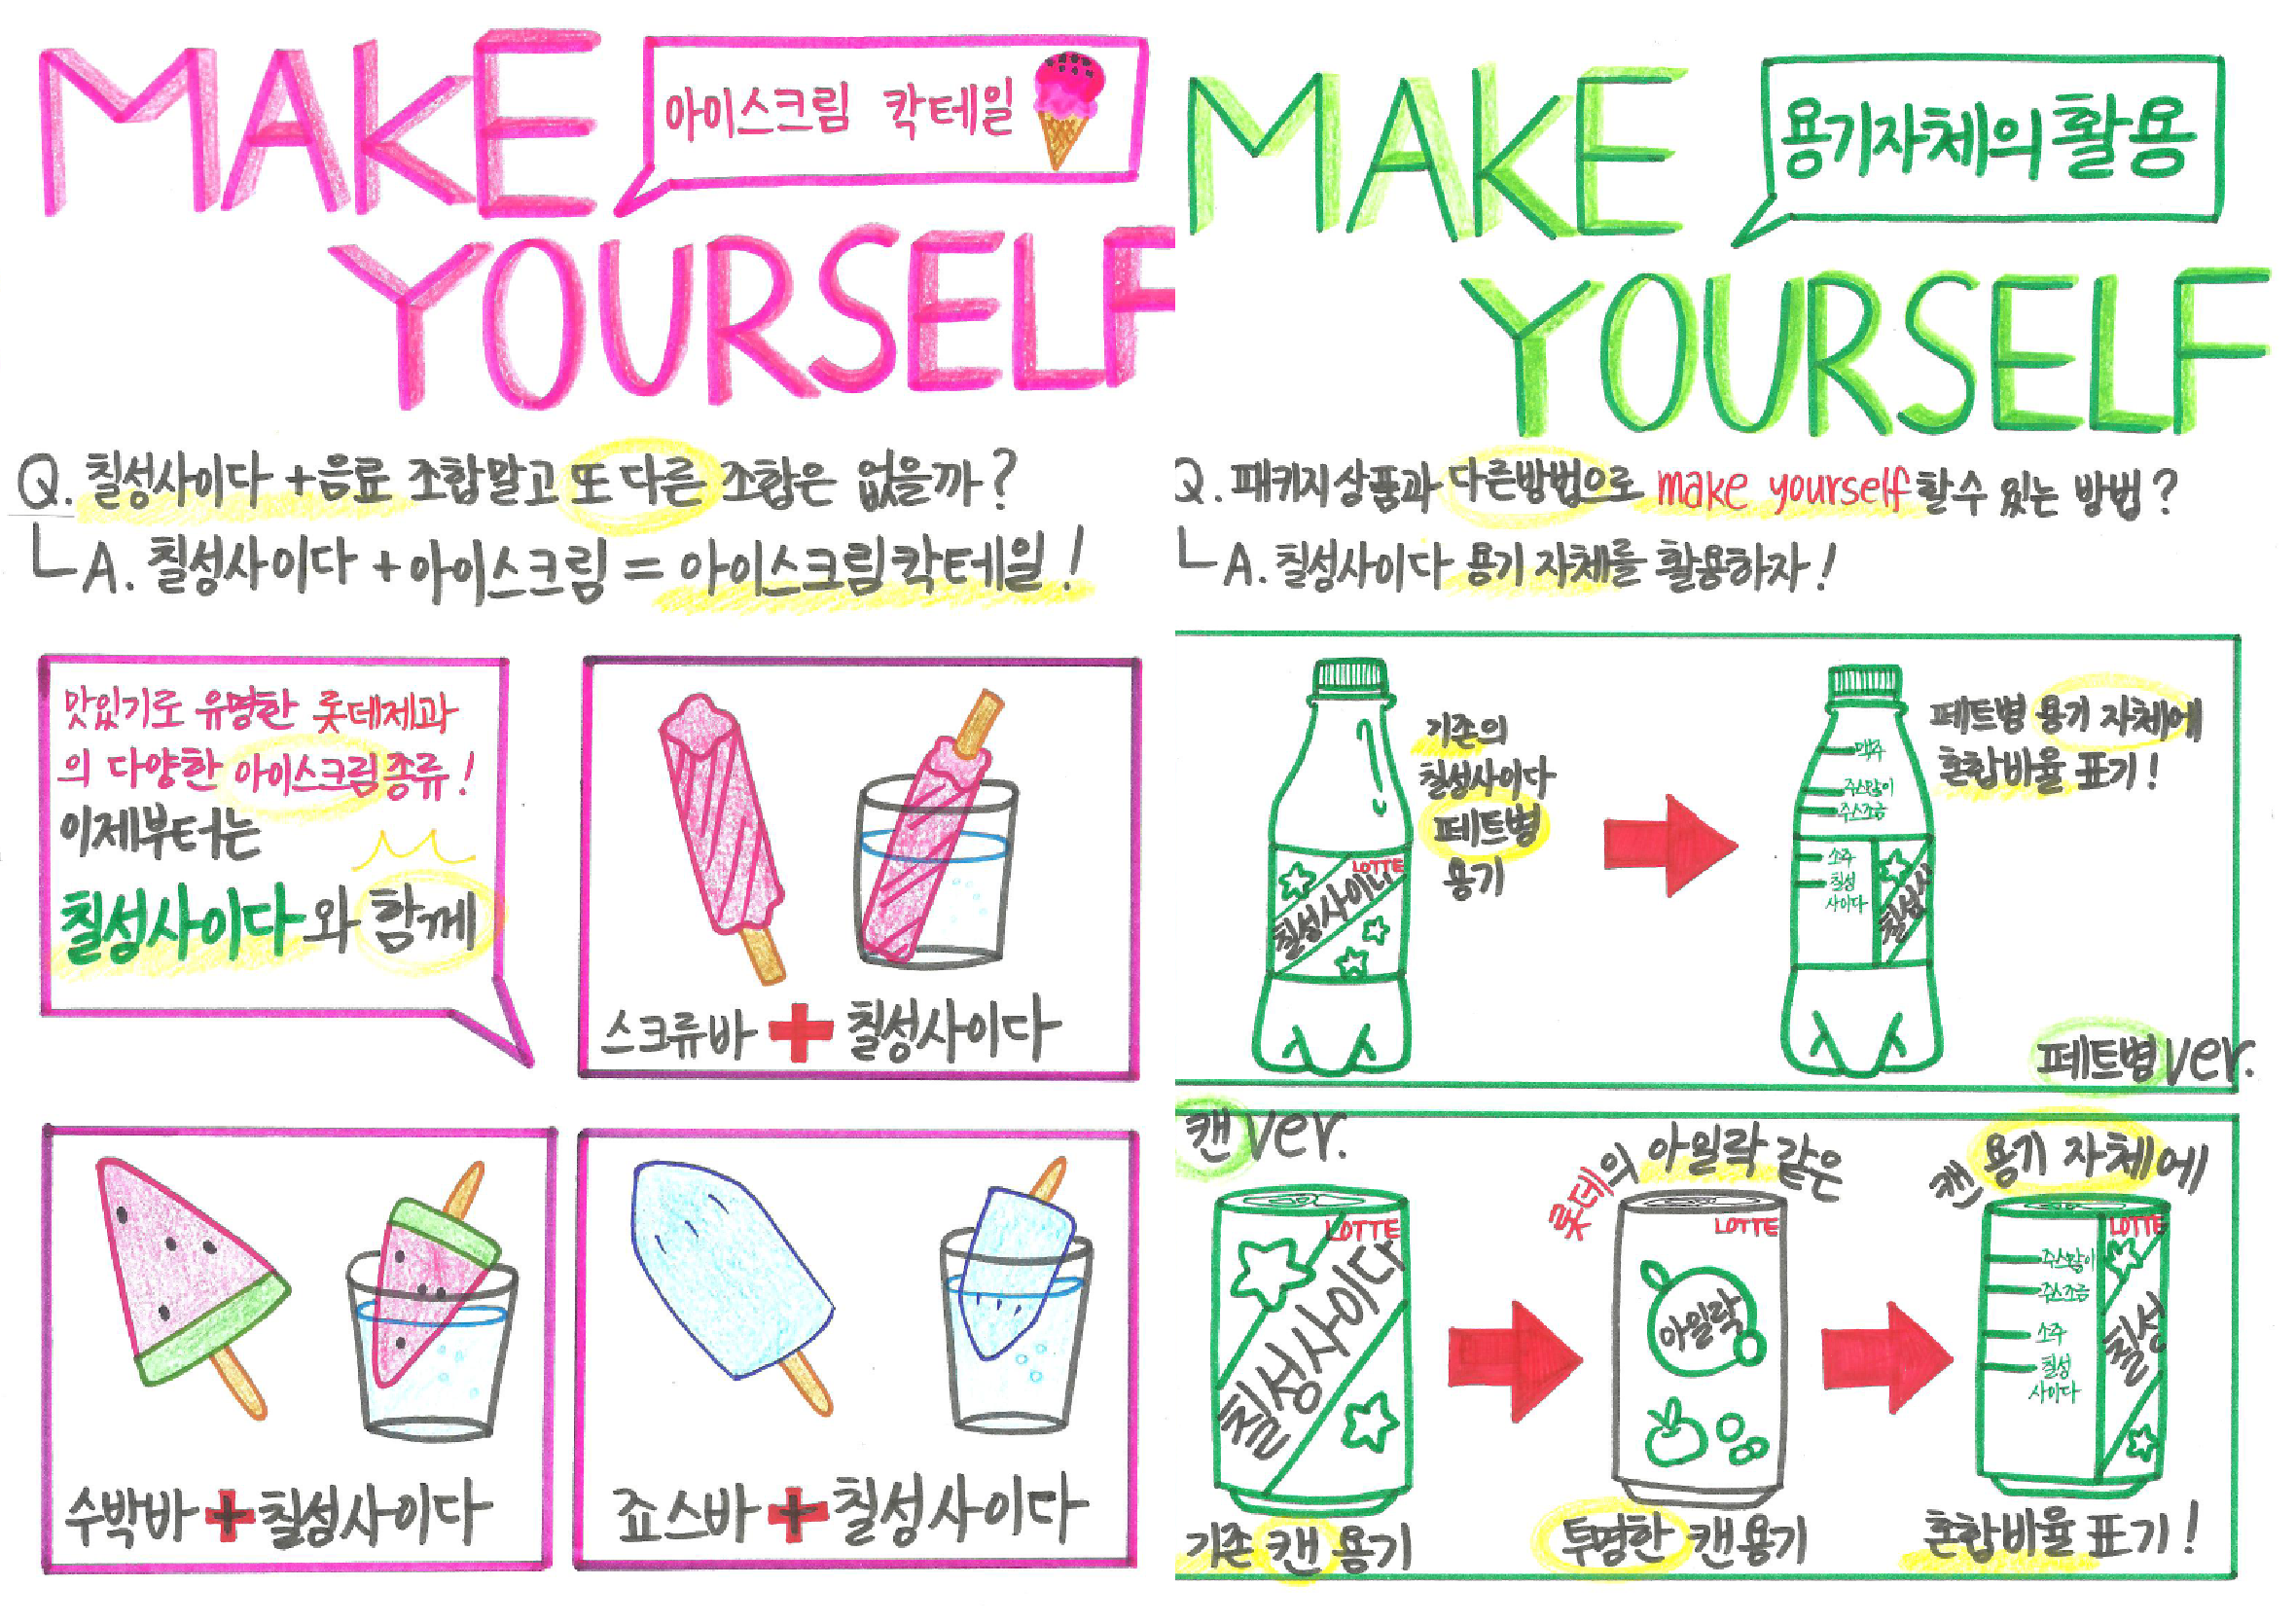 MAKE
아이스크림 칵테일
YOURSELF
Q. 칠성사이다 + 음료 조합말고 또 다른 조합은 없을까?
A. 칠성사이다 + 아이스크림 = 아이스크림 칵테일!
맛있기로 유명한 롯데제과
의 다양한 아이스크림 종류!
이제부터는
칠성사이다와 함께
스크류바 + 칠성사이다
수박바 + 칠성사이다
죠스바 + 칠성사이다
MAKE
용기자체의 활용
YOURSELF
Q. 패키지상품과 다른방법으로 make yourself 할수 있는 방법?
A. 칠성사이다 용기 자체를 활용하자!
LOTTE
칠성사이다
기존의
칠성사이다
페트병
용기
맥주
주스많이
주스조금
소주
칠성
사이다
칠성사
페트병 용기 자체에
혼합비율 표기!
페트병 ver.
캔 ver.
LOTTE
칠성사이다
기존 캔 용기
롯데의 아일락 같은
LOTTE
아일락
투명한 캔용기
캔 용기 자체에
LOTTE
주스많이
주스조금
소주
칠성
사이다
칠성
혼합비율 표기!